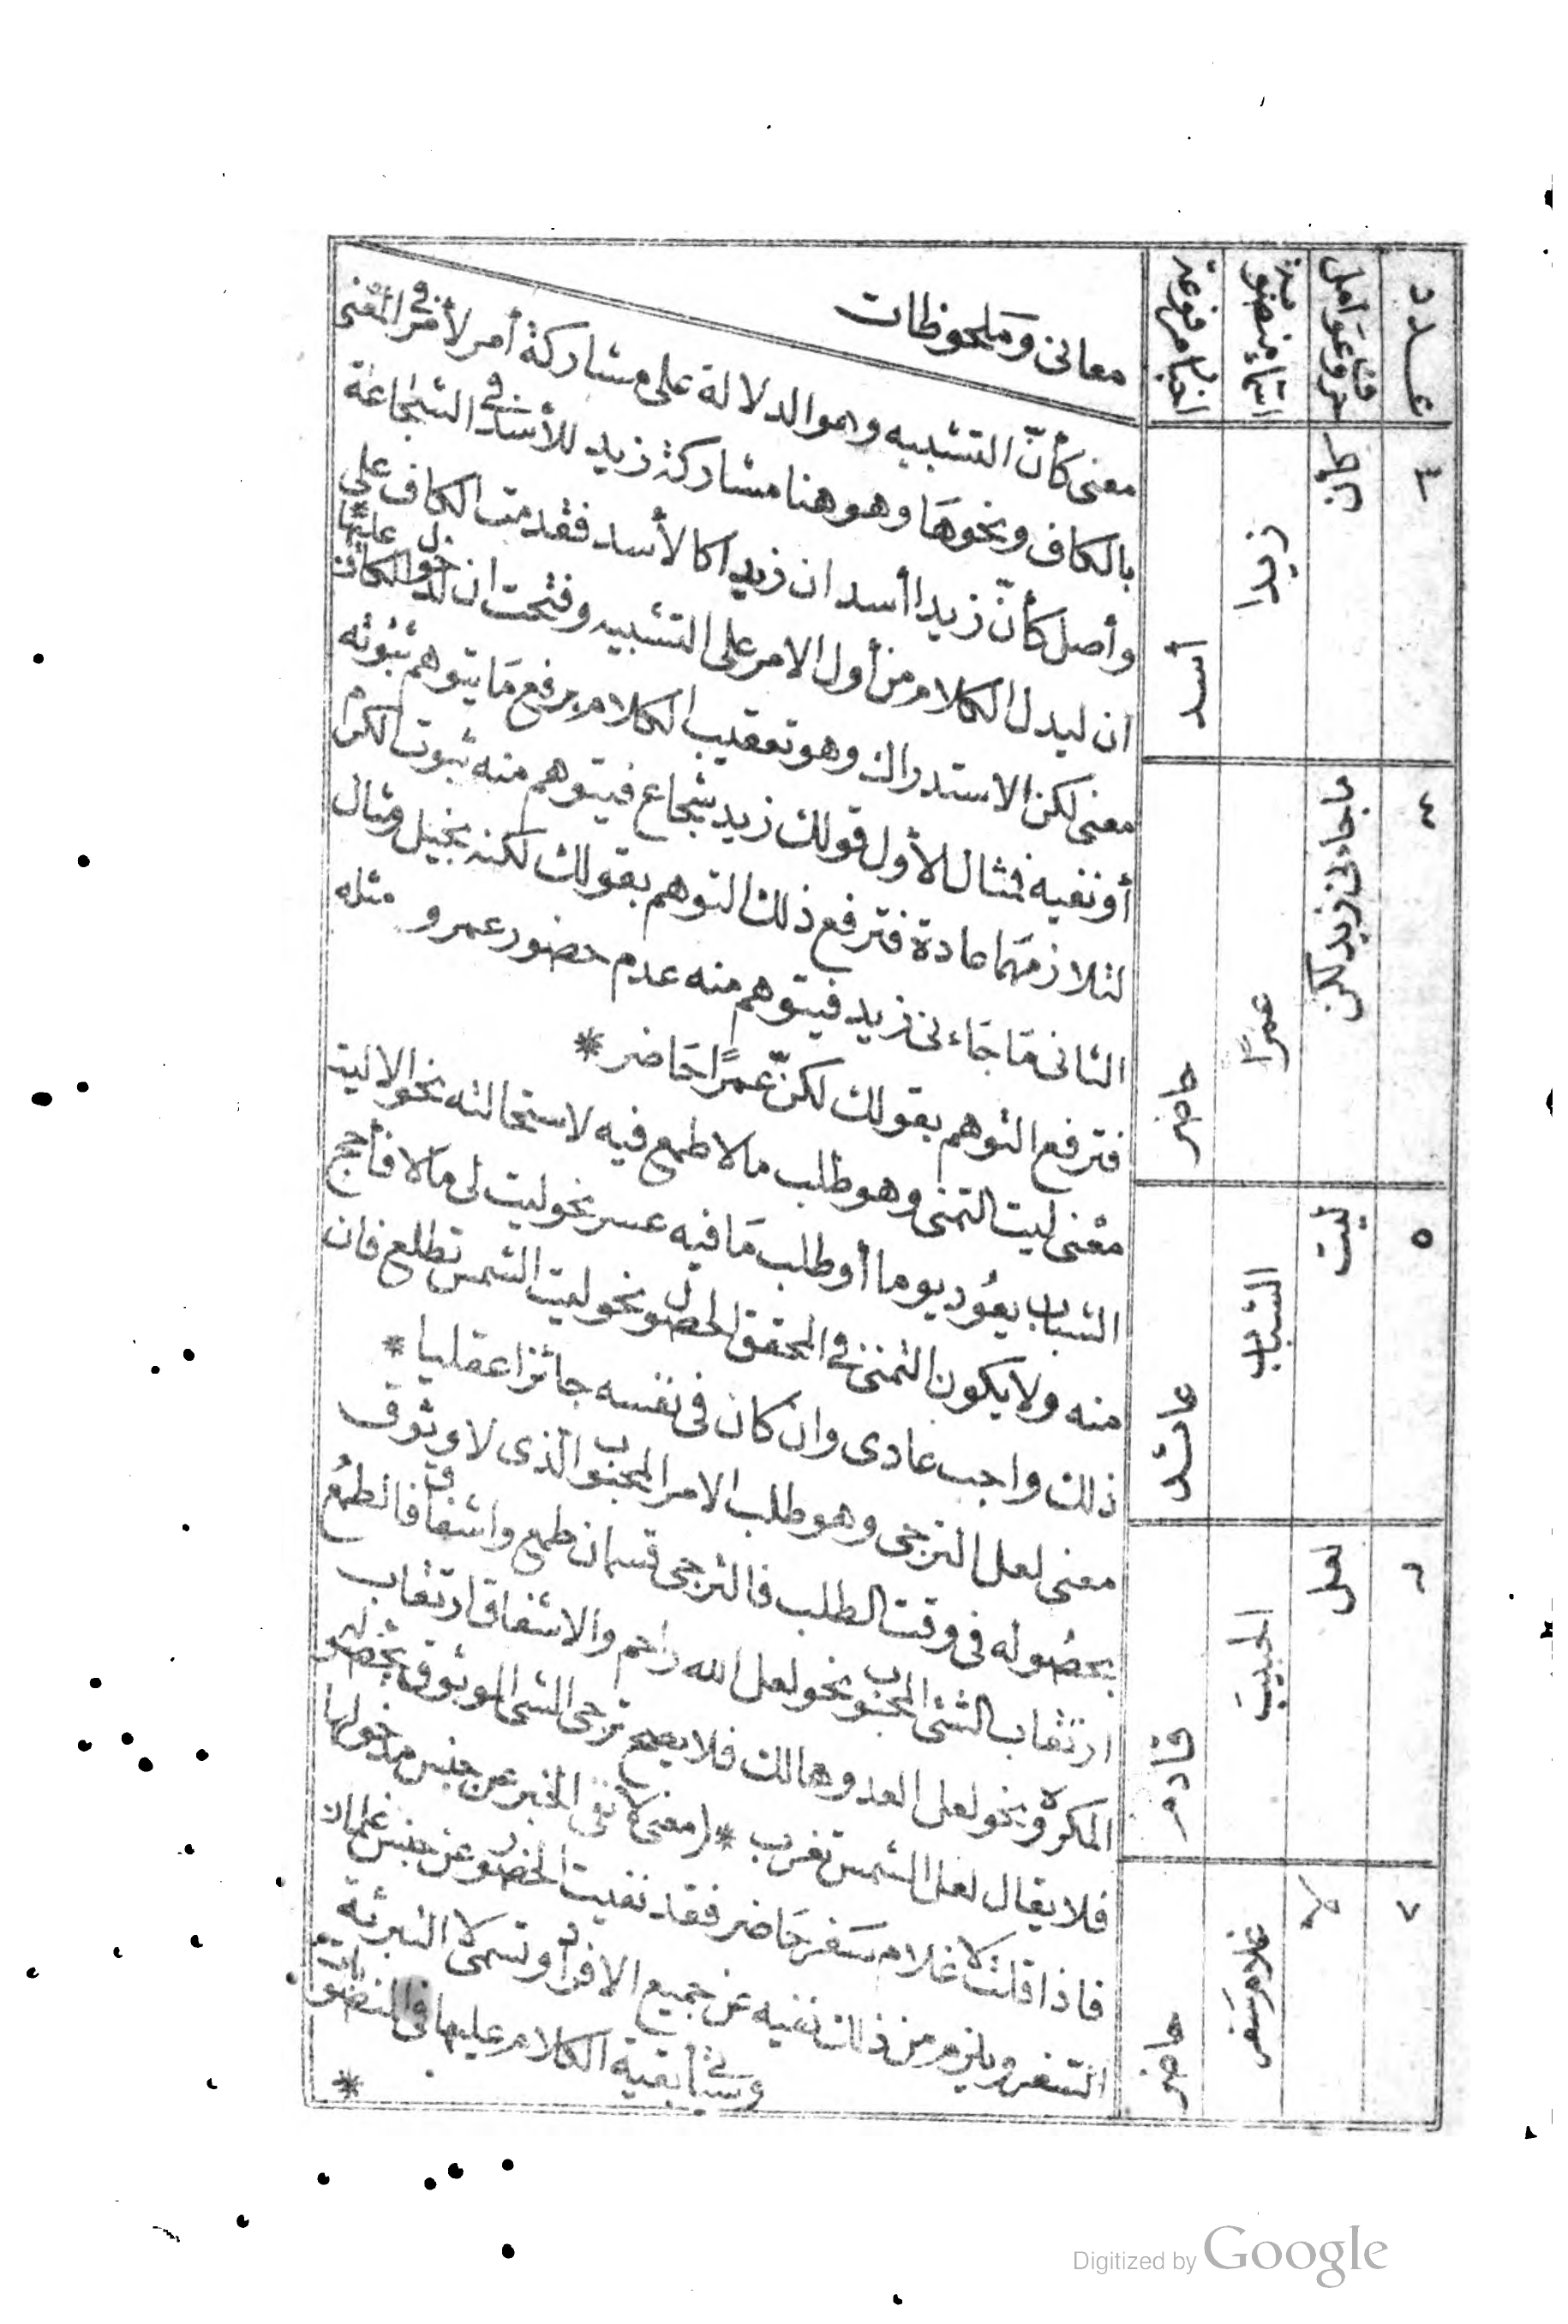 عدد
حروف عوامل
اسماء منصوبة
اخبار مرفوعة
معانى وملحوظات
٣
كأن
زيدا
أسد
معنى كأنّ التشبيه وهو الدلالة على مشاركة أمر لأمر فى المعنى
بالكاف ونحوها وهو هنا مشاركة زيد للأسد فى الشجاعة
وأصل كأنّ زيدا أسد ان زيدا كالأسد فقدمت الكاف على
ان ليدل الكلام من أول الامر على التشبيه وفتحت ان لدخول الكاف عليها
٤
ما جاءنى زيد لكن
عمرًا
حاضر
معنى لكن الاستدراك وهو تعقيب الكلام برفع مَا يتوهم ثبوته
أو نفيه فمثال الأول قولك زيد شجاع فيتوهم منه ثبوت الكرم
لتلازمهما عادة فترفع ذلك التوهم بقولك لكنه بخيل ومثال
الثانى مَا جَاءنى زيد فيتوهم منه عدم حضور عمرو مثله
فترفع التوهم بقولك لكنّ عمرًا حَاضر *
٥
ليت
الشباب
عائد
معْنى ليت التمنى وهو طلب ما لا طمع فيه لاستحالته نحو الا ليت
الشباب يعُود يوما أو طلب مَا فيه عسر نحو ليت لى مَالا فأحج
منه ولا يكون التمنى فى المحقق الحصول نحو ليت الشمس تطلع فان
ذلك واجب عادى وان كان فى نفسه جائزا عقليا *
٦
لعل
الحبيبَ
قادم
معنى لعل الترجى وهو طلب الامر المحبوب الّذى لا وثوق
بحصُوله فى وقت الطلب فالترجى قسمان طمع واشفاق فالطمعُ
ارتقاب الشئ المحبوب نحو لعل الله راحم والاشفاق ارتقاب
المكروه نحو لعل العدو هالك فلا يصح ترجى الشئ الموثوق بحصوله
فلا يقال لعل الشمس تغرب * (معنى لا نفى الخبر عن جنس مدخولها
٧
لا
غلام سَفر
حاضر
فاذا قلت لا غلام سَفر حَاضر فقد نفيت الحضور عن جنس غلمان
السّفر ويلزم من ذلك نفيه عن جميع الافراد وتسمى لا التبرئة
وسَيأتى بقية الكلام عليها فى المنصوبات
*
Digitized by Google